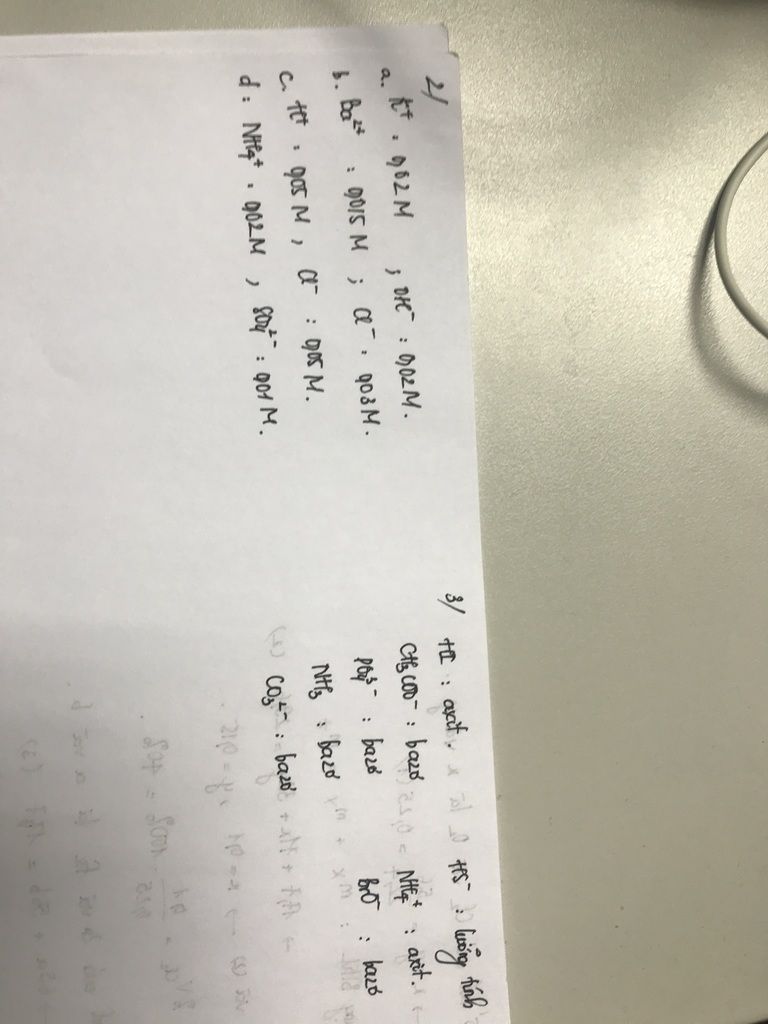 2/
a. K⁺ : 0,02M ; OH⁻ : 0,02M.
b. Ba²⁺ : 0,015M ; Cl⁻ : 0,03M.
c. H⁺ : 0,05M , Cl⁻ : 0,05M.
d : NH₄⁺ : 0,02M , SO₄²⁻ : 0,01M.
3/ HI : axit. HS⁻ : lưỡng tính
CH₃COO⁻ : bazơ NH₄⁺ : axit.
PO₄³⁻ : bazơ BrO⁻ : bazơ
NH₃ : bazơ
CO₃²⁻ : bazơ